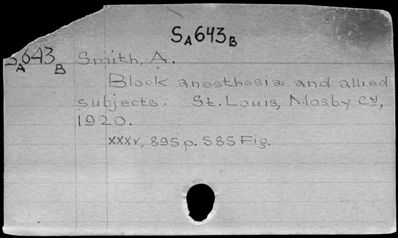 SA643B
SA643B Smith, A.
Block anesthesia and allied
subjects. St. Louis, Mosby Cy,
1920.
xxxv, 895 p. 585 Fig.